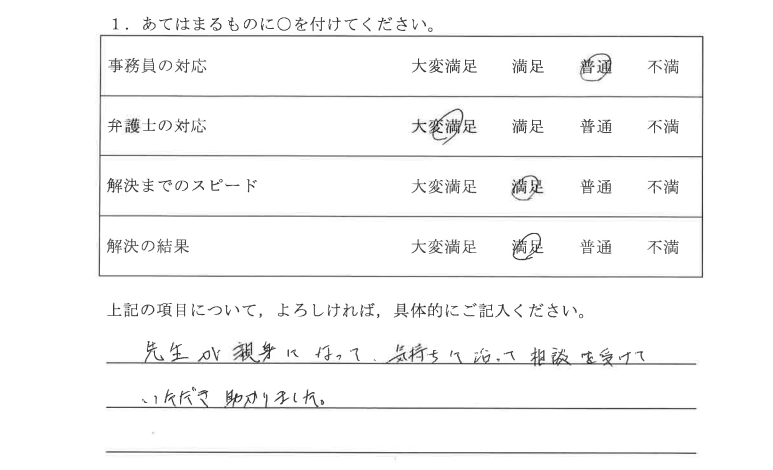 1．あてはまるものに○を付けてください。
事務員の対応 大変満足 満足 普通 不満
弁護士の対応 大変満足 満足 普通 不満
解決までのスピード 大変満足 満足 普通 不満
解決の結果 大変満足 満足 普通 不満
上記の項目について，よろしければ，具体的にご記入ください。
先生が親身になって、気持ちに沿って相談を受けて
いただき助かりました。